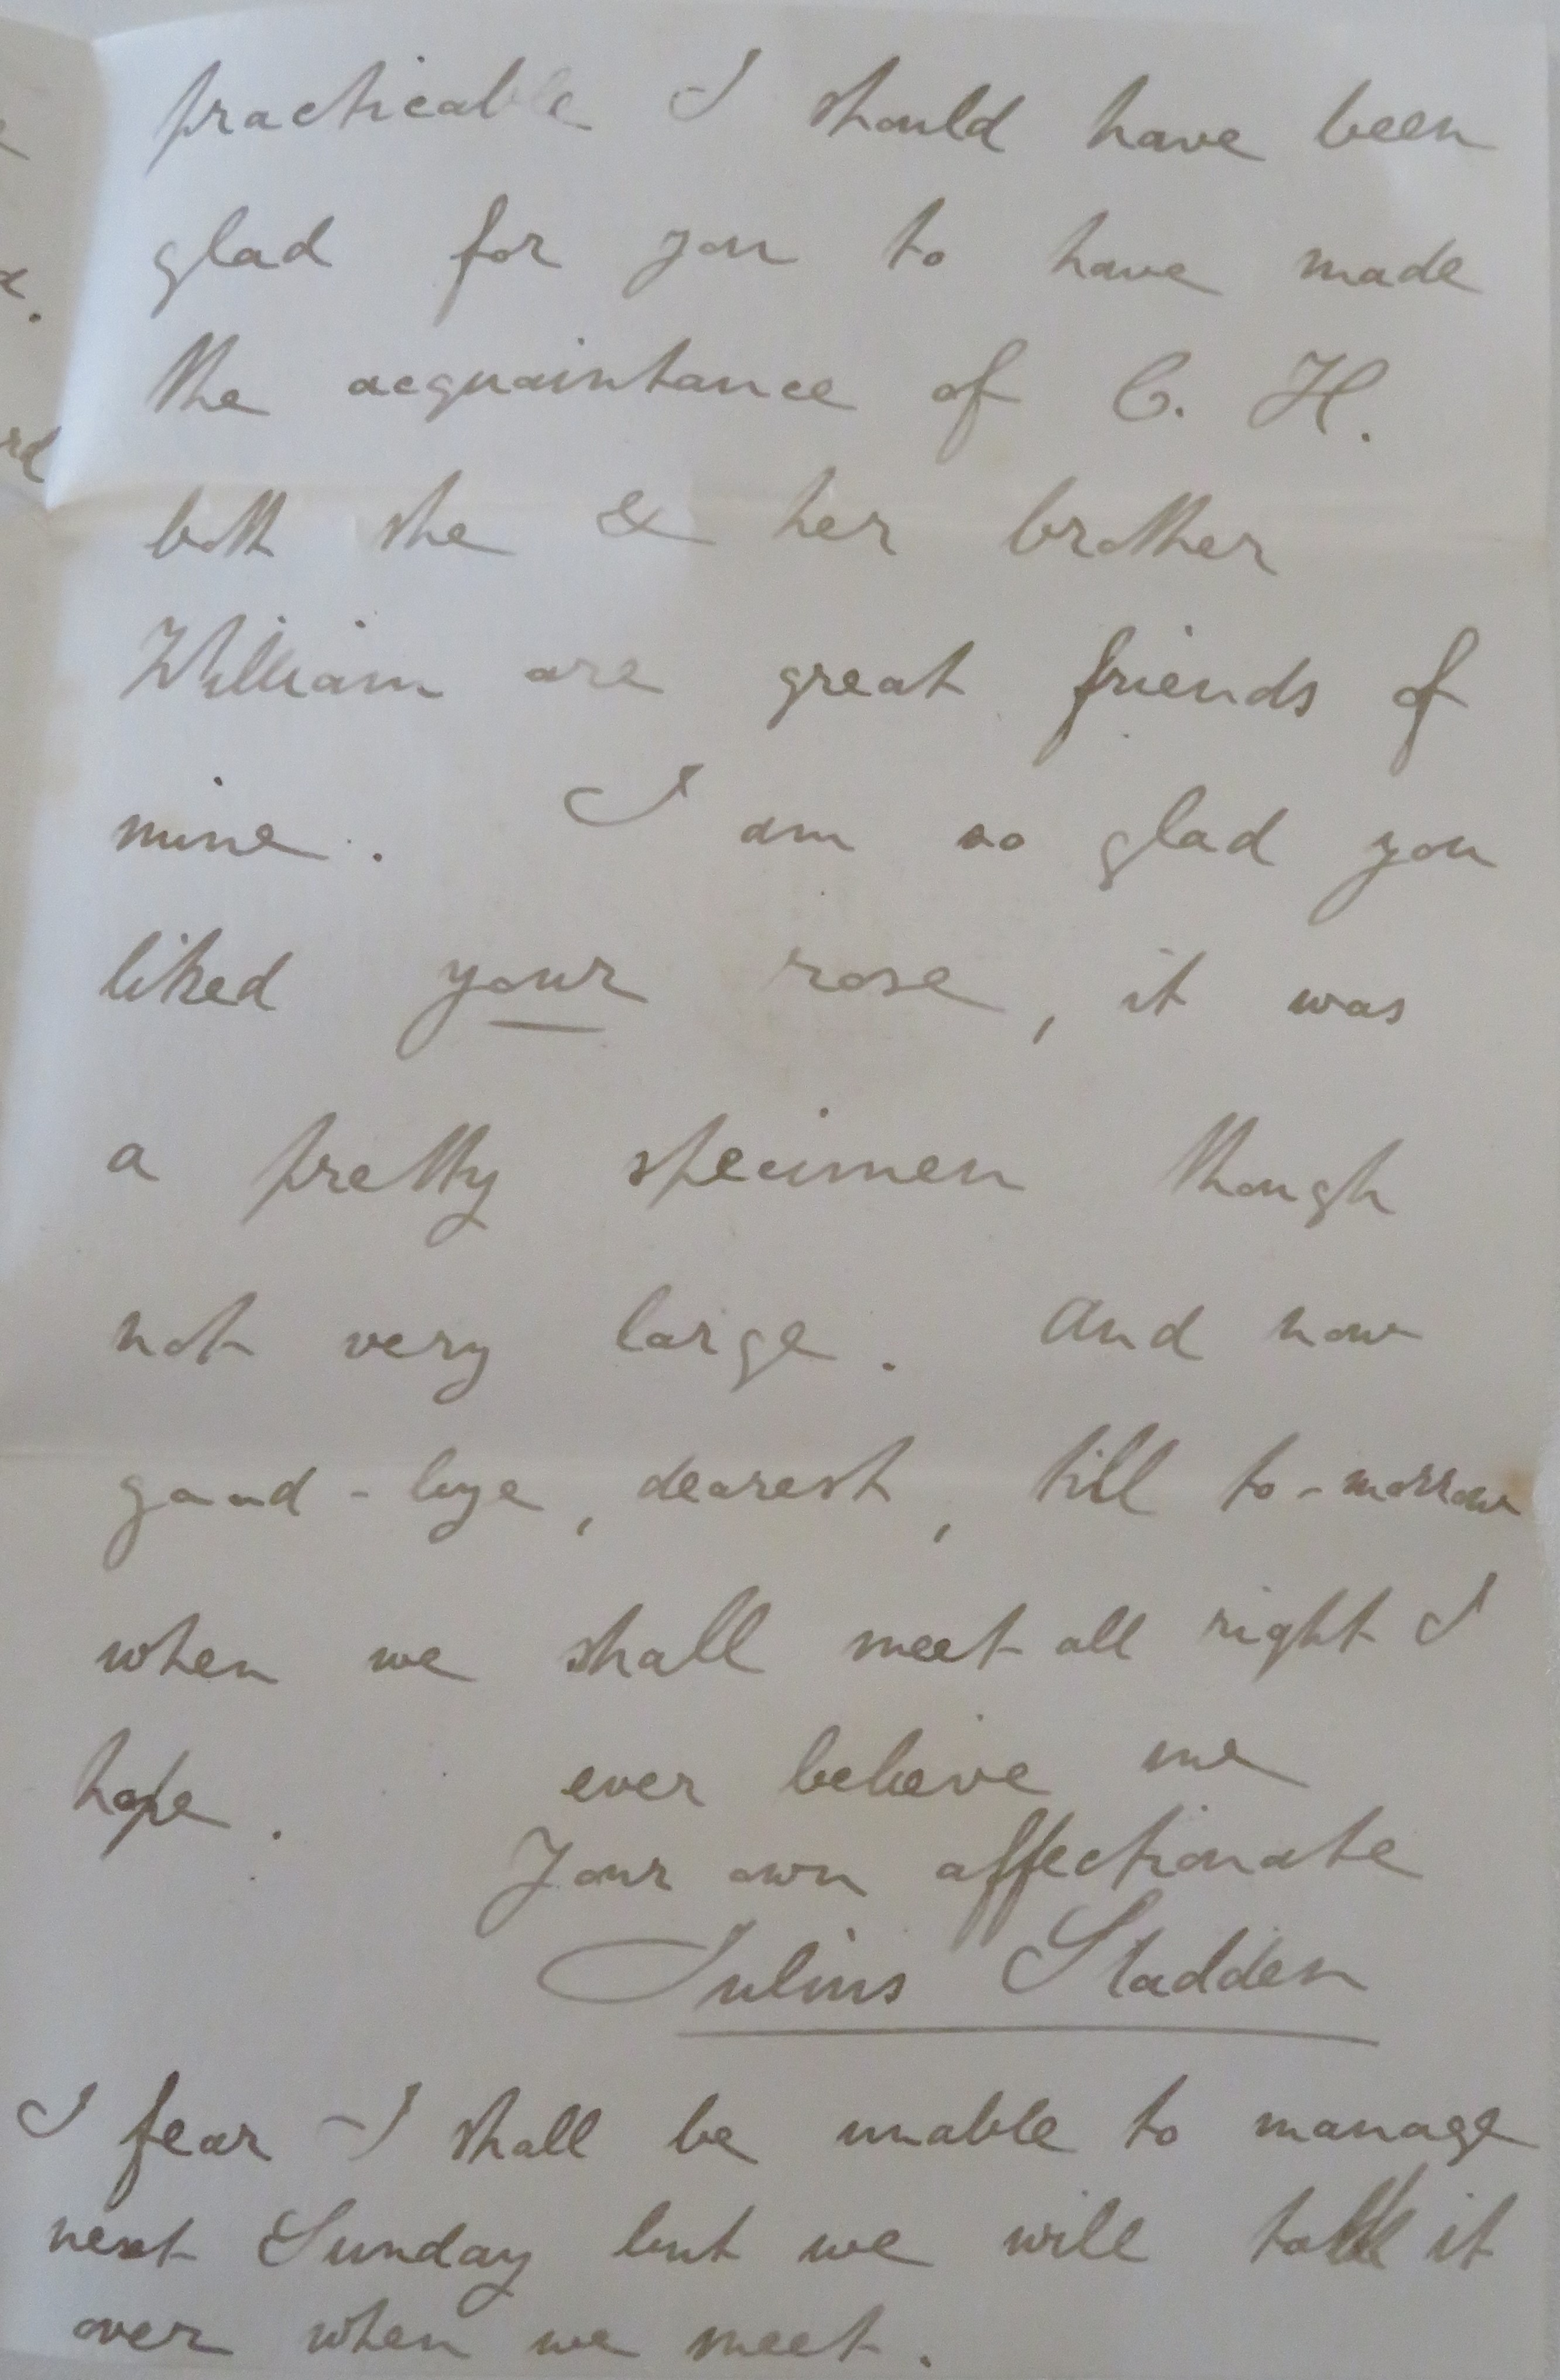 practicable I should have been
glad for you to have made
the acquaintance of C. H.
both she & her brother
William are great friends of
mine. I am so glad you
liked your rose, it was
a pretty specimen though
not very large. And now
good-bye, dearest, till to-morrow
when we shall meet all right I
hope. ever believe me
Your own affectionate
Julius Sladden
I fear I shall be unable to manage
next Sunday but we will talk it
over when we meet.